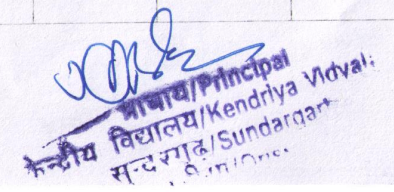 प्राचार्य/Principal
केन्द्रीय विद्यालय/Kendriya Vidyal
सुन्दरगढ़/Sundargar